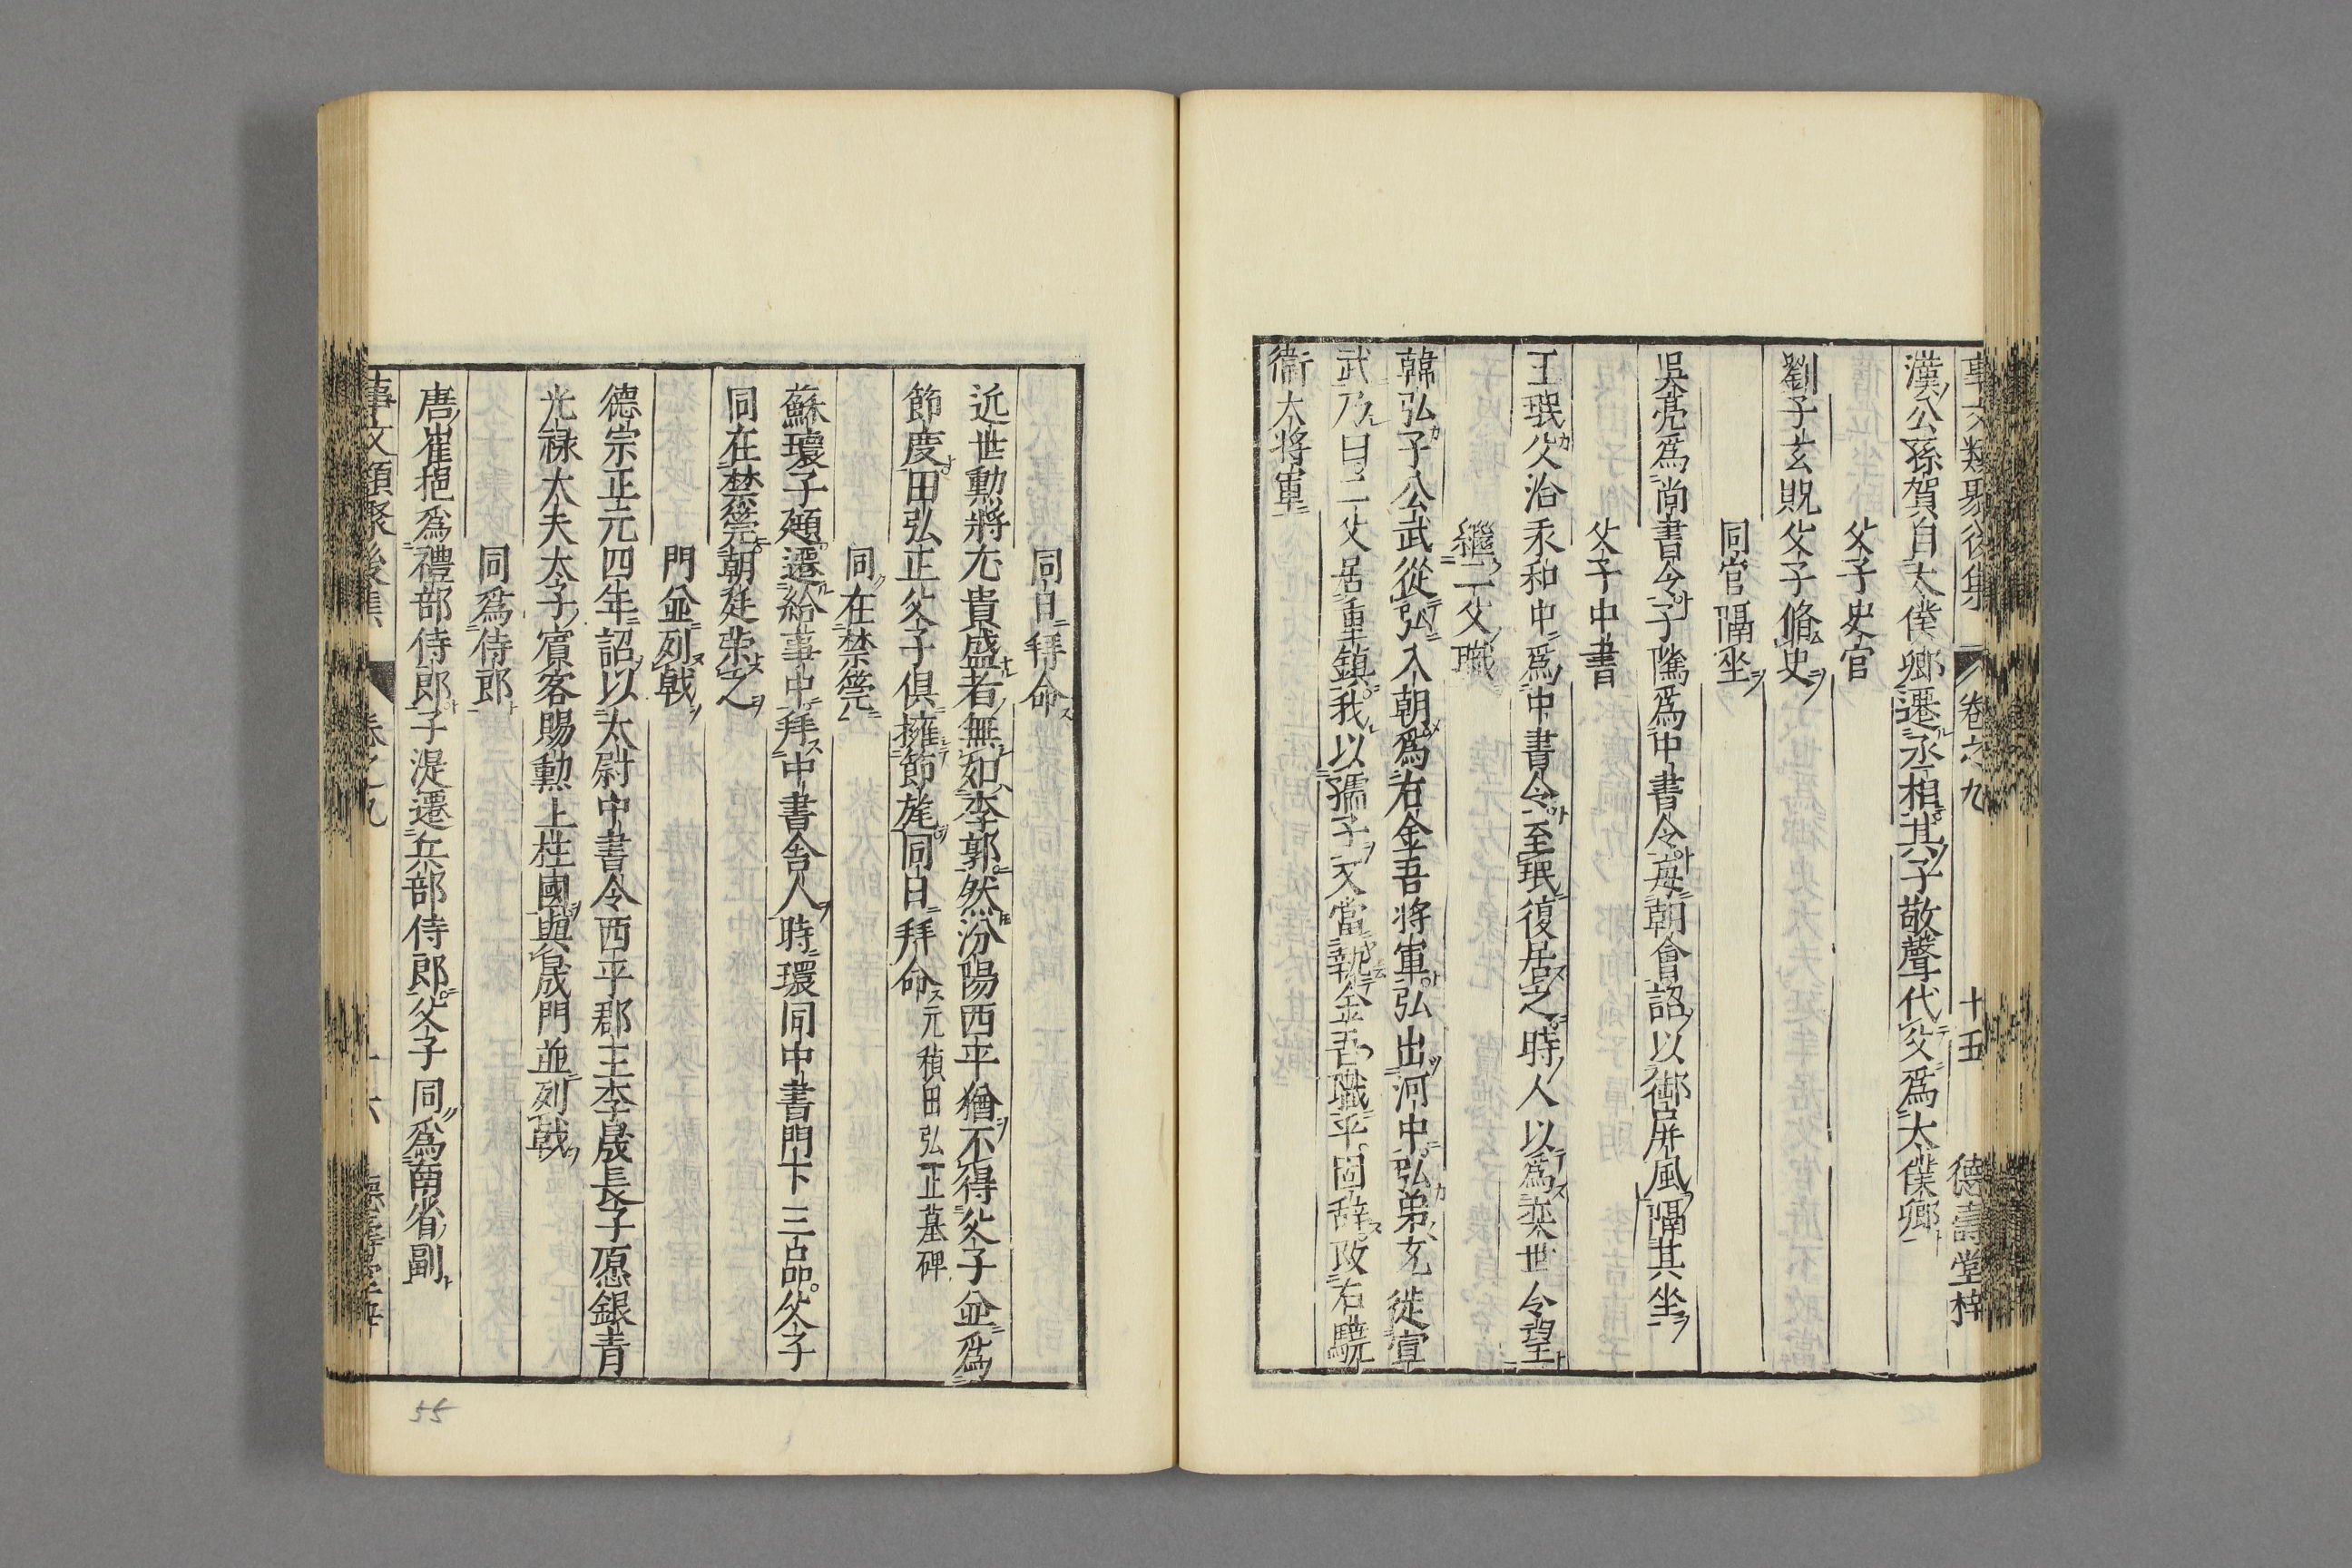 事文類聚後集 卷之九 十五 德壽堂梓
漢公孫賀自太僕卿遷丞相其子敬聲代父爲太僕卿
父子史官
劉子玄貺父子脩史
同官隔坐
吳亮爲尚書令子隲爲中書令每朝會詔以御屏風隔其坐
父子中書
王珉父洽永和中爲中書令至珉復居之時人以爲奕世令望
繼二父職
韓弘子公武從弘入朝爲右金吾將軍弘出河中弘弟玄徙宣
武乃曰二父居重鎮我以孺子又當執金吾職乎固辞改右驍
衞大將軍
同日拜命
近世勲將尤貴盛者無如李郭然汾陽西平猶不得父子並爲
節度田弘正父子俱擁節旄同日拜命元稹田弘正墓碑
同在禁筦
蘇瓌子頲遷給事中拜中書舍人時瓌同中書門下三品父子
同在禁筦朝廷荣之
門並列戟
德宗正元四年詔以太尉中書令西平郡王李晟長子愿銀青
光禄大夫太子賓客賜勲上柱國與晟門並列戟
同爲侍郎
唐崔挹爲禮部侍郎子湜遷兵部侍郎父子同爲南省副
事文類聚後集 卷之九
55